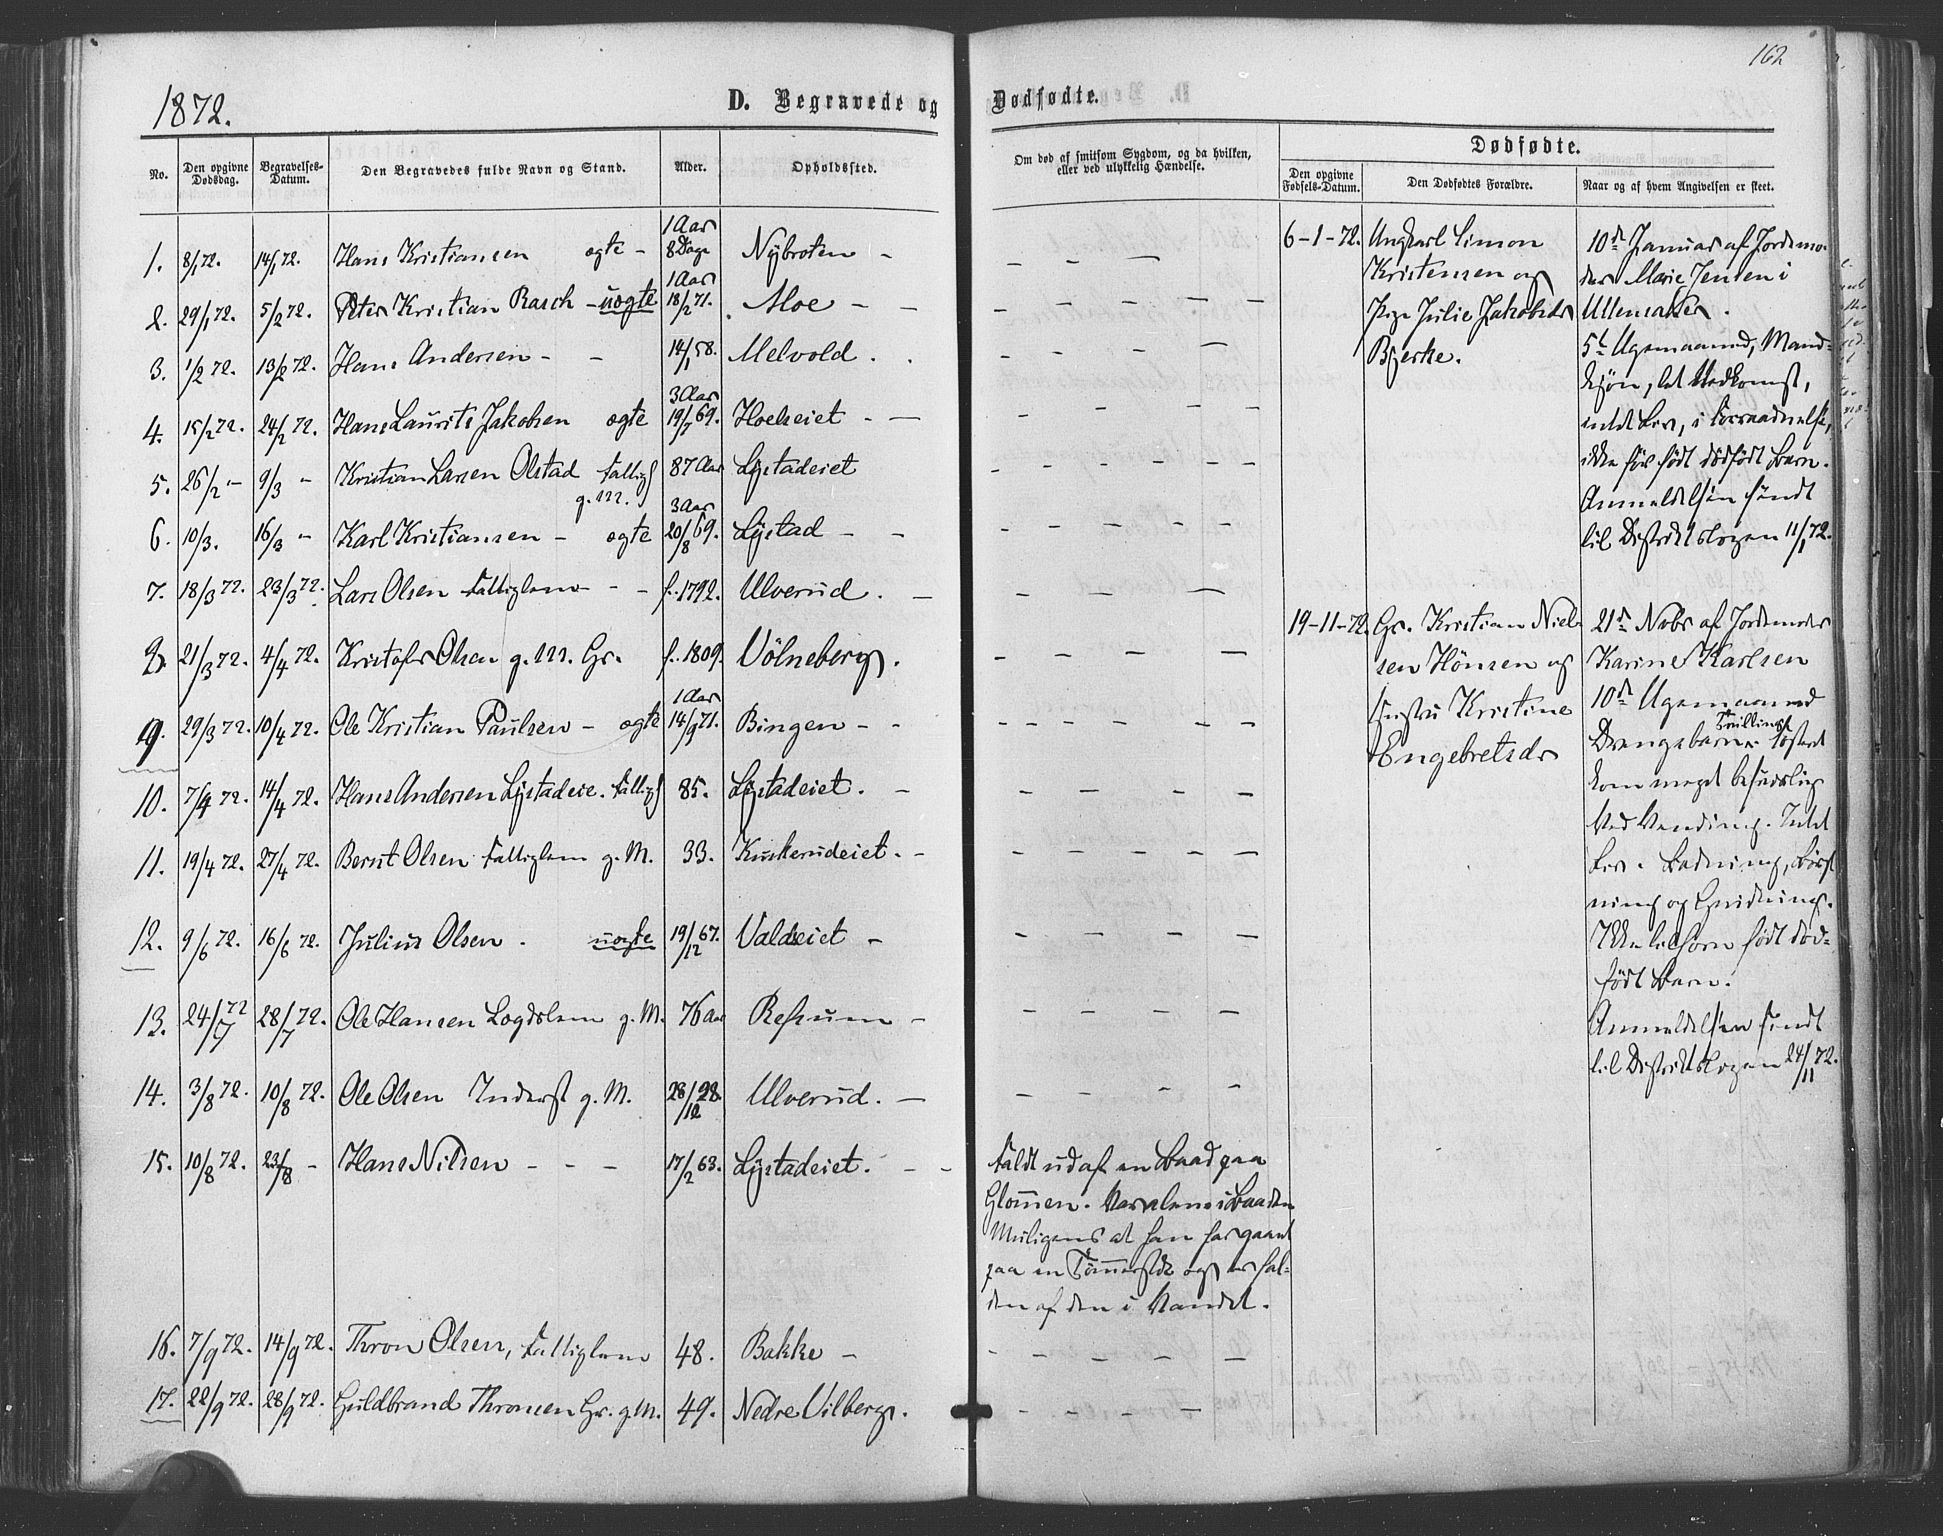 162
1872.
D. Begravede og Dødfødte.
No.
Den opgivne Dødsdag.
Begravelses-Datum.
Den Begravedes fulde Navn og Stand.
Alder.
Opholdssted.
Om død af smitsom Sygdom, og da hvilken, eller ved ulykkelig Hændelse.
Dødfødte.
Den opgivne Fødsels-Datum.
Den Dødfødtes Forældre.
Naar og af hvem Angivelsen er skeet.
1. 8/1 72. 14/1 72. Hans Kristiansen ægte - 1 Aar 8 Dage Nybroten -
2. 29/1 72. 5/2 72. Peter Kristian Rasch - uægte 1 Aar 18/2 71. Moe - -
3. 1/2 72. 13/2 72. Hans Andersen - - 14/1 58. Melvold . .
4. 15/2 72. 24/2 72. Hans Laurits Jakobsen ægte 3 Aar 19/7 69. Hoelseiet - -
5. 26/2 - 9/3 - Kristian Larsen Olstad Fattigl g.M. 87 Aar Lystadeiet
6. 10/3. 16/3 - Karl Kristiansen - ægte 3 Aar 20/8 69. Lystad - -
7. 18/3 72. 23/3 72. Lars Olsen Fattiglem - - - f. 1792. Ulverud . -
8. 21/3 72. 4/4 72. Kristofer Olsen g.M. Gr. f. 1809. Völneberg.
9. 29/3 72. 10/4 72. Ole Kristian Paulsen - ægte 1 Aar 14/9 71. Bingen - -
10. 7/4 72. 14/4 72. Hans Andersen Lystadeie. Fattigl 85. Lystadeiet. -
11. 19/4 72. 27/4 72. Bernt Olsen Fattiglem g. M. 33. Kuskerudeiet. -
12. 9/6 72. 16/6 72. Julius Olsen . uægte 19/12 67. Valdseiet -
13. 24/7 72 28/7 72. Ole Hansen Lægdslem g. M. 76 Aar Refsum -
14. 3/8 72. 10/8 72. Ole Olsen Inderst g. M. 28/12 28. Ulverud. -
15. 10/8 72. 23/8 - Hans Nilsen - - - 17/2 63. Lystadeiet. - -
Faldt ud af en Baad paa
Glommen. Var alene i Baaden
Muligens at han har gaaet
paa en Tömmer og er fal-
den af den i Vandet.
16. 7/9 72. 14/9 72. Thron Olsen, Fattiglem 48. Bakke -
17. 22/9 72. 28/9 72. Guldbrand Thronsen Gr. g.M. 49. Nedre Vilberg.
6-1-72. Ungkarl Simon
Kristensen og
Pige Julie Jakobsdr
Bjerke.
10de Januar af Jordemo-
der Marie Jensen i
Ullensaker.
5te Ugemaaned, Mand-
kjön, let Nedkomst,
intet Liv, i Forraadnelse,
ikke för födt dödfödt Barn.
Anmeldelsen sendt
til Distriktslægen 11/1 72.
19-11-72. Gr. Kristian Niel-
sen Hönsen og
Hustru Kristine
Engebretsdr
21de Nobr af Jordemoder
Karine Karlsen
10de Ugemaaned
Drengebarn. Tvilling Fosteret
kom meget besværlig
Ved Vending. Intet
Liv. Badning, Börst
ning og Gnidning.
Ikke tilforn födt död-
födt Barn.
Anmeldelsen sendt
til Distriktslægen 24/11 72.